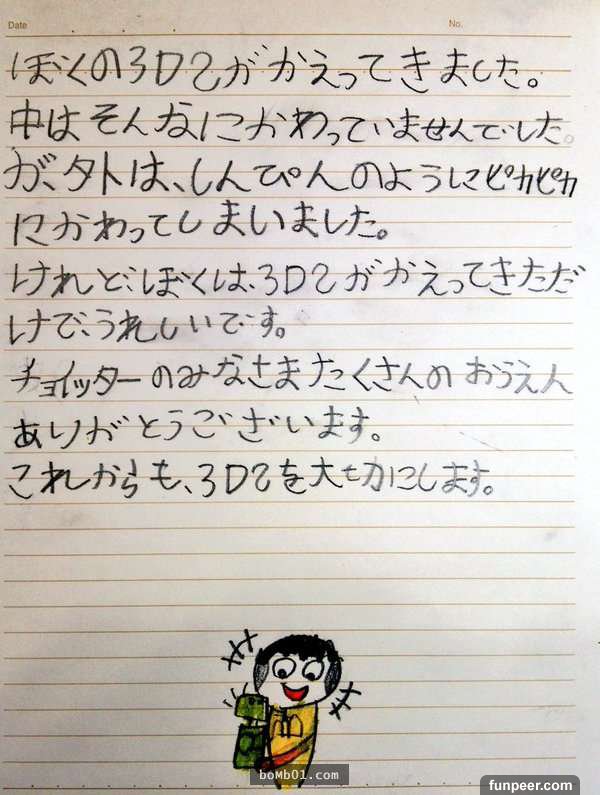 Date
No.
ぼくの3DSがかえってきました。
中はそんなにかわっていませんでした。
が、外は、しんぴんのようにピカピカ
にかわってしまいました。
けれど、ぼくは、3DSがかえってきただ
けで、うれしいです。
チョイッターのみなさまたくさんのおうえん
ありがとうございます。
これからも、3DSを大切にします。
boMb01.com
funpeer.com